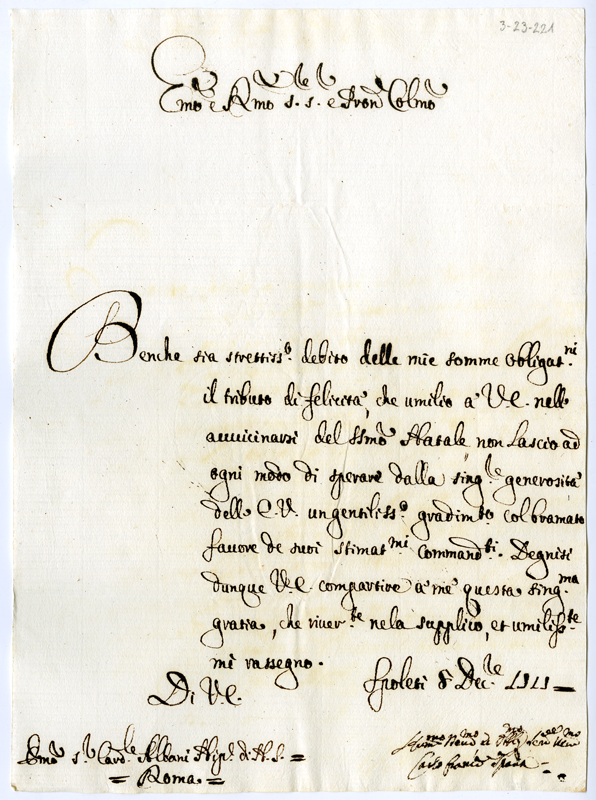 3-23-221
Emo e Rmo S.r S.r e Pron Colmo
Benche sia strettiss.o debito delle mie somme obligat.ni
il tributo di felicità, che umilio à V.E. nell
auuicinarsi del SSmo Natale non lascio ad
ogni modo di sperare dalla sing.le generosità
dell E.V. un gentiliss.o gradim.to col bramato
fauore de suoi stimat.mi Command.ti. Degnisi
dunque V.E. compartire à me questa sing.ma
gratia, che riuer.te nela supplico, et umiliss.te
mi rassegno.
Di V.E. Spoleti 8 Dec.re 1711
Emo S.r Card.le Albani Nip.e di N.S.
Roma
Carlo Franc.o Spada